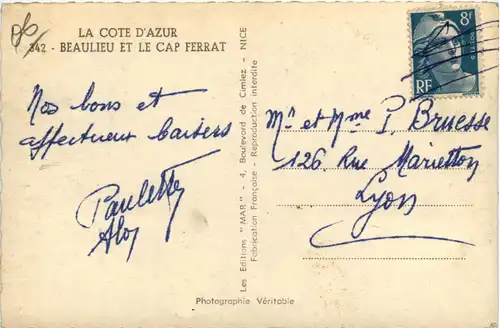 LA COTE D'AZUR
342 - BEAULIEU ET LE CAP FERRAT
Nos bons et
affectueux baisers
Paulette
Les Editions "MAR" - 4, Boulevard de Cimiez - NICE
Fabrication Française - Reproduction interdite
8F
RF
Mr et Mme P. Bruesse
126 Rue Marietton
Lyon
Photographie Véritable